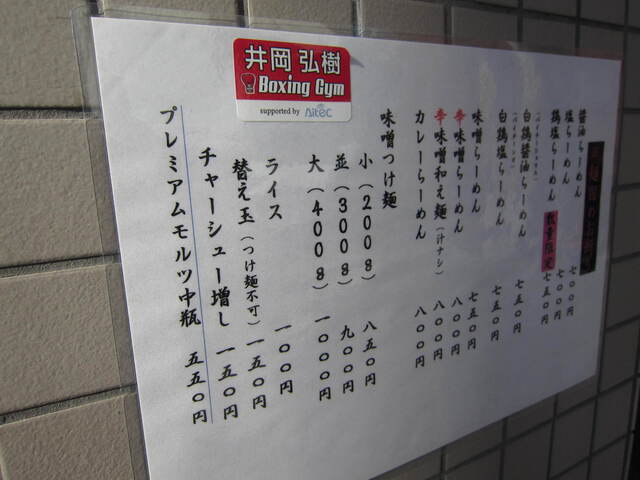 井岡 弘樹
Boxing Gym
supported by Aitec
醤油らーめん 七〇〇円
塩らーめん 七〇〇円
鶏塩らーめん 数量限定 七五〇円
白鶏醤油らーめん 七五〇円
白鶏塩らーめん 七五〇円
味噌らーめん 七五〇円
辛味噌らーめん 八〇〇円
辛味噌和え麺(汁ナシ) 八〇〇円
カレーらーめん 八〇〇円
味噌つけ麺
小(200g) 八五〇円
並(300g) 九〇〇円
大(400g) 一〇〇〇円
ライス 一〇〇円
替え玉(つけ麺不可) 一五〇円
チャーシュー増し 一五〇円
プレミアムモルツ中瓶 五五〇円